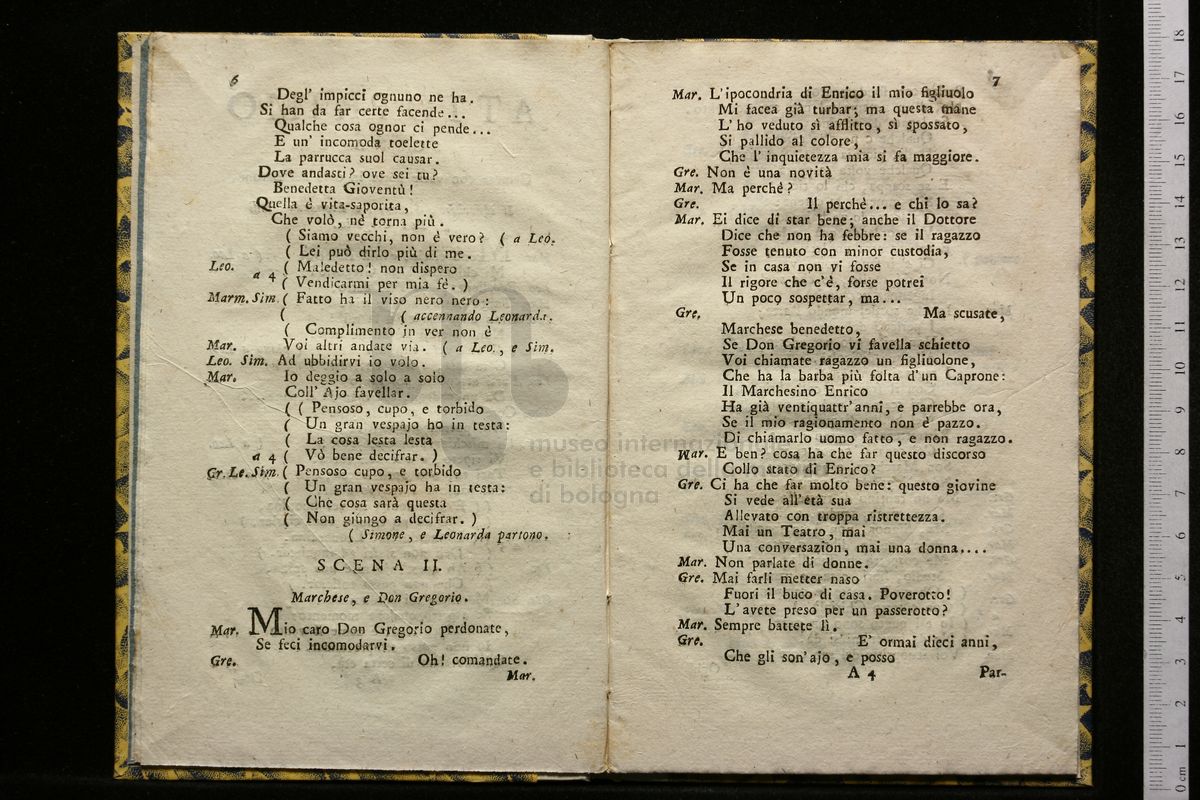 6
Degl' impicci ognuno ne ha.
Si han da far certe facende...
Qualche cosa ognor ci pende...
E un' incomoda toelette
La parrucca suol causar.
Dove andasti? ove sei tu?
Benedetta Gioventù!
Quella è vita-saporita,
Che volò, nè torna più.
( Siamo vecchi, non è vero? ( a Leo.
( Lei può dirlo più di me.
Leo. a 4 ( Maledetto! non dispero
( Vendicarmi per mia fè. )
Marm. Sim. ( Fatto ha il viso nero nero:
( ( accennando Leonarda.
( Complimento in ver non è
Mar. Voi altri andate via. ( a Leo., e Sim.
Leo. Sim. Ad ubbidirvi io volo.
Mar. Io deggio a solo a solo
Coll' Ajo favellar.
( ( Pensoso, cupo, e torbido
( Un gran vespajo ho in testa:
( La cosa lesta lesta
a 4 ( Vò bene decifrar. )
Gr. Le. Sim. ( Pensoso cupo, e torbido
( Un gran vespajo ha in testa:
( Che cosa sarà questa
( Non giungo a decifrar. )
( Simone, e Leonarda partono.
SCENA II.
Marchese, e Don Gregorio.
Mar. Mio caro Don Gregorio perdonate,
Se feci incomodarvi.
Gre. Oh! comandate.
Mar.
7
Mar. L'ipocondria di Enrico il mio figliuolo
Mi facea già turbar; ma questa mane
L' ho veduto sì afflitto, sì spossato,
Si pallido al colore,
Che l' inquietezza mia si fa maggiore.
Gre. Non è una novità
Mar. Ma perchè?
Gre. Il perchè... e chi lo sa?
Mar. Ei dice di star bene; anche il Dottore
Dice che non ha febbre: se il ragazzo
Fosse tenuto con minor custodia,
Se in casa non vi fosse
Il rigore che c'è, forse potrei
Un poco sospettar, ma...
Gre. Ma scusate,
Marchese benedetto,
Se Don Gregorio vi favella schietto
Voi chiamate ragazzo un figliuolone,
Che ha la barba più folta d'un Caprone:
Il Marchesino Enrico
Ha già ventiquattr'anni, e parrebbe ora,
Se il mio ragionamento non è pazzo.
Di chiamarlo uomo fatto, e non ragazzo.
Mar. E ben? cosa ha che far questo discorso
Collo stato di Enrico?
Gre. Ci ha che far molto bene: questo giovine
Si vede all'età sua
Allevato con troppa ristrettezza.
Mai un Teatro, mai
Una conversazion, mai una donna....
Mar. Non parlate di donne.
Gre. Mai farli metter naso
Fuori il buco di casa. Poverotto!
L'avete preso per un passerotto?
Mar. Sempre battete lì.
Gre. E' ormai dieci anni,
Che gli son'ajo, e posso
A 4 Par-
museo internazi
e biblioteca dell
di bologna
0 cm 1 2 3 4 5 6 7 8 9 10 11 12 13 14 15 16 17 18